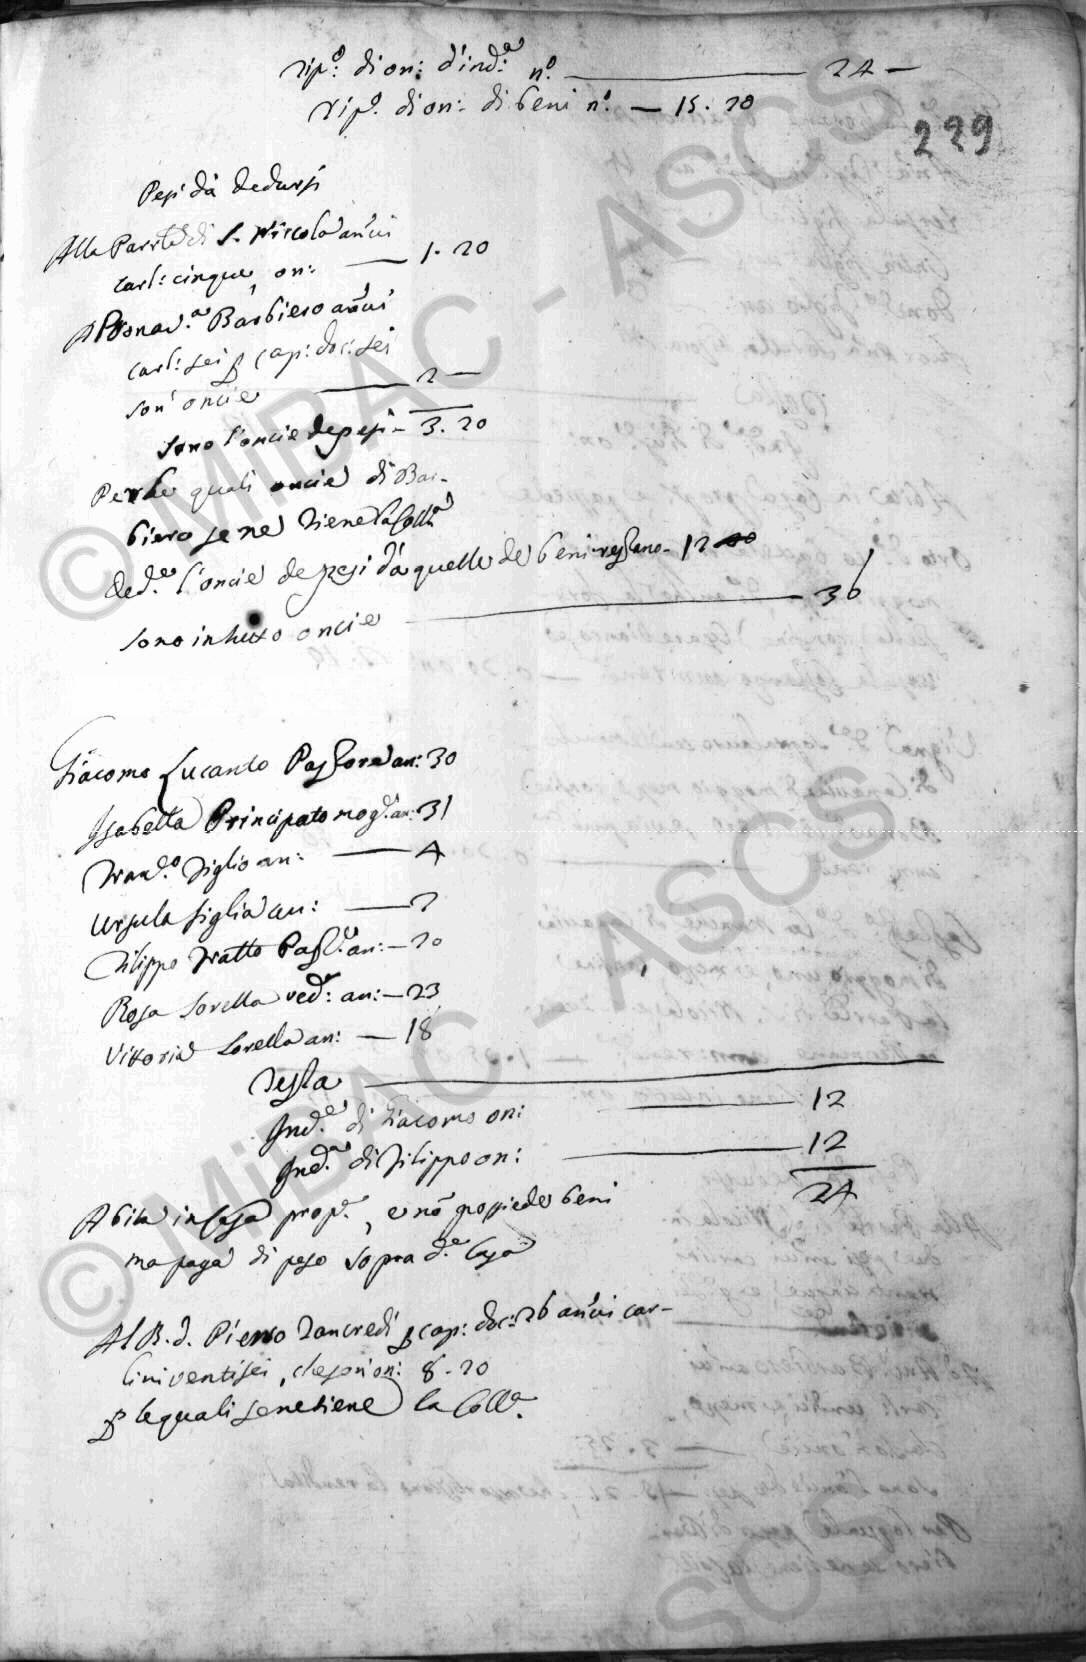 rip.o di on: d'ind.a n.o — 24 —
rip.o di on: di beni n.o — 15.20
229
Pesi da dedursi
Alla Parr.le di S. Niccola annui
carl: cinque, on: — 1.20
A Barbiero annui
carl: sei p cap: doc: sei
son' oncie — 2 —
sono l'oncie de pesi — 3.20
Perle quali oncie di Bar-
biero se ne tiene la Coll.a
Ded.e l'oncie de pesi da quelle de beni restano — 12
sono in tutto oncie — 36
Giacomo Lucanto Pastore an: 30
Isabella Principato mog.e an: 31
Fran.o figlio an: — 4
Ursula figlia an: — 2
Filippo Fratto Past.e an: — 20
Rosa sorella ved.a: an: — 23
Vittoria sorella an: — 18
Testa —
Ind.a di Giacomo on: — 12
Ind.a di Filippo on: — 12
24
Abita in Casa prop.a, e nõ possiede beni
ma paga di peso sopra d.a Casa
Al R. d. Pietro Tancredi p cap: doc: 26 annui car-
lini ventisei, che son' on: 8.20
p le quali se ne tiene la Coll.a
© MiBAC - ASCS
© MiBAC - ASCS
ASCS